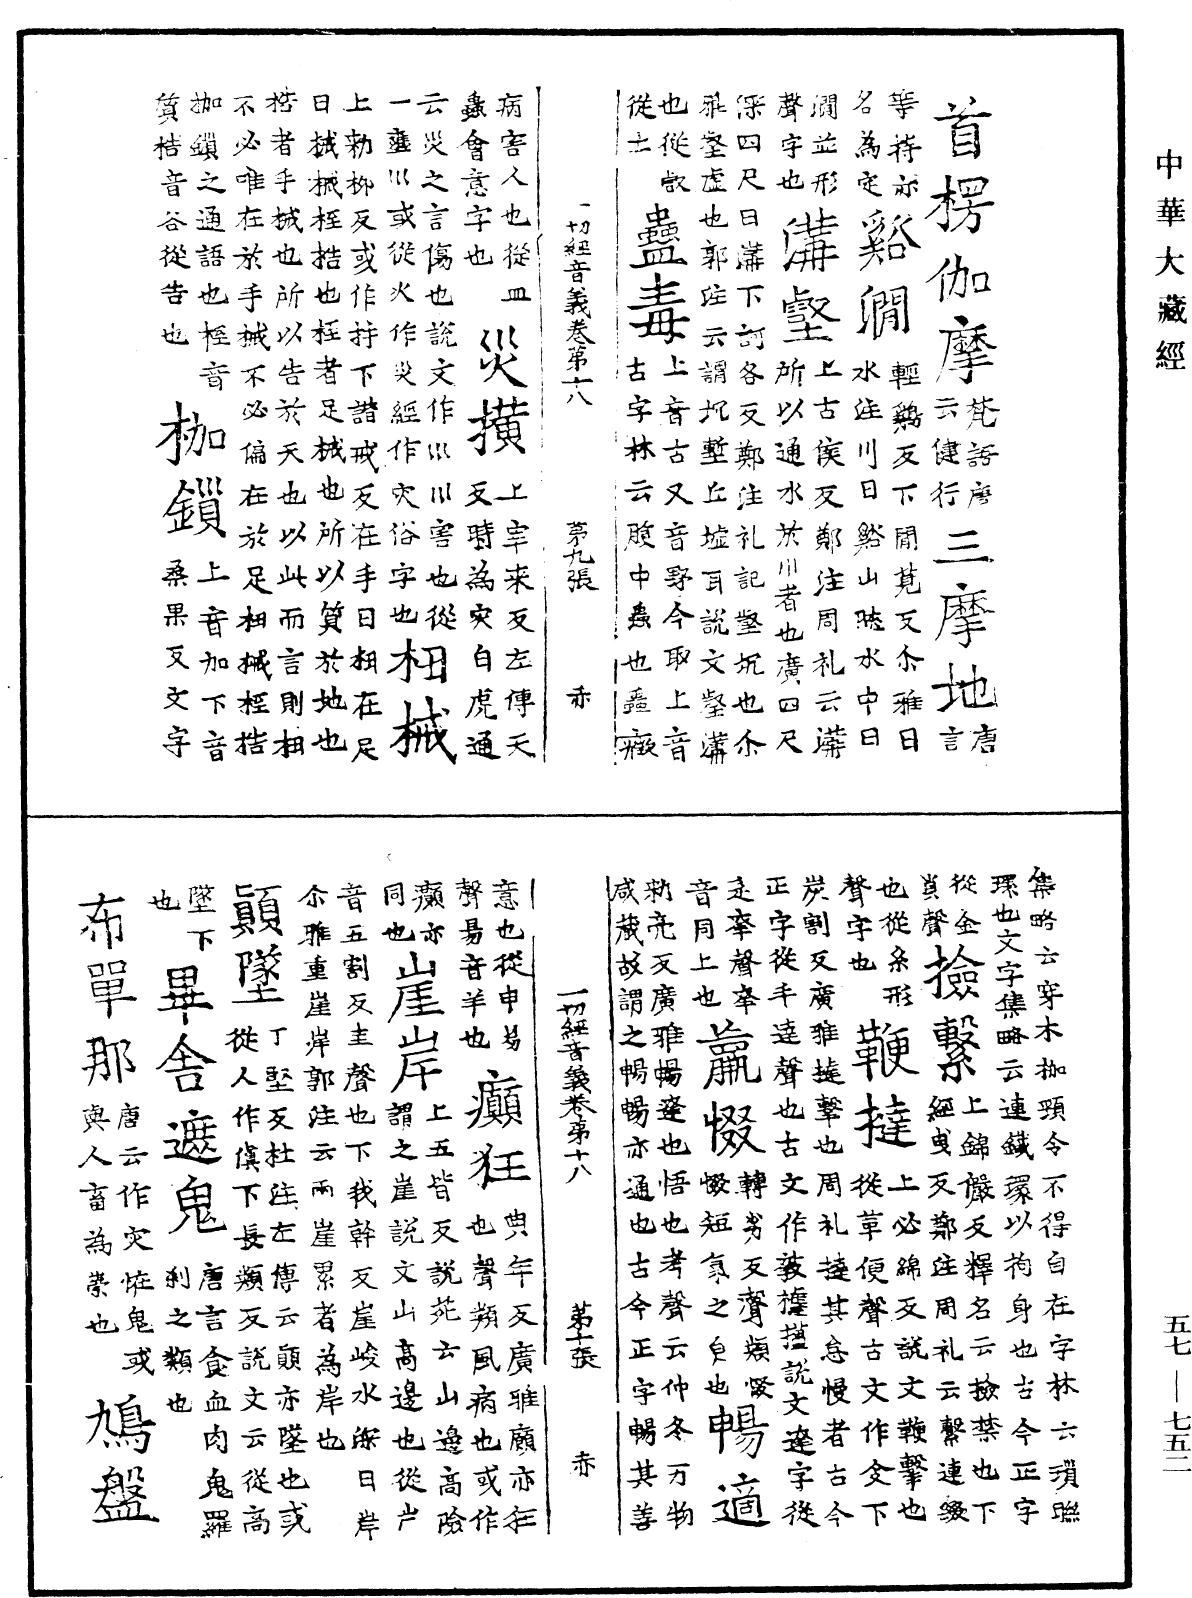 中華大藏經
首楞伽摩
梵語唐
云健行
三摩地
唐
言
等持亦
名為定
谿㵎
輕鷄反下間莧反尒雅曰
水注川曰谿山㹂水中曰
㵎並形
聲字也
溝壑
上古侯反鄭注周礼云溝
所以通水於川者也廣四尺
深四尺曰溝下訶各反鄭注礼記壑坑也尒
雅壑虛也郭注云謂坑塹丘墟耳說文壑溝
也從㕡
從土
蠱毒
上音古又音野今取上音
古字林云腹中蟲也蠱癥
一切經音義卷第十八　第九張　赤
病害人也從皿
蟲會意字也
災橫
上宰來反左傳天
反時為灾白虎通
云災之言傷也說文作巛川害也從
一壅巛或從火作災經作灾俗字也
杻械
上勑柳反或作杽下諧戒反在手曰杻在足
曰械械桎梏也桎者足械也所以質於地也
梏者手械也所以告於天也以此而言則杻
不必唯在於手械不必偏在於足杻械桎梏
枷鎖之通語也桎音
質梏音谷從告也
枷鎖
上音加下音
桑果反文字
集略云穿木枷頸令不得自在字林云瑣聯
環也文字集略云連鐵環以拘身也古今正字
從金
𧴪聲
撿繫
上錦儼反釋名云撿禁也下
經曳反鄭注周礼云繫連綴
也從糸形
聲字也
鞭撻
上必綿反說文鞭擊也
從革便聲古文作㚣下
炭割反廣雅撻擊也周礼撻其怠慢者古今
正字從手達聲也古文作說文達字從
辵羍聲羍
音同上也
羸惙
轉劣反聲類惙
惙短氣之皃也
暢適
勑亮反廣雅暢達也悟也考聲云仲冬万物
咸藏故謂之暢暢亦通也古今正字暢其善
一切經音義卷第十八　第十張　赤
意也從申昜
聲昜音羊也
癲狂
典年反廣雅癲亦狂
也聲類風病也或作
癲亦
同也
崖岸
上五皆反說苑云山邊高險
謂之崖說文山高邊也從屵
音五割反圭聲也下我幹反崖峻水深曰岸
尒雅重崖岸郭注云兩崖累者為岸也
顛墜
丁堅反杜注左傳云顛亦墜也或
從人作傎下長類反說文云從高
墜下
也
畢舍遮鬼
唐言食血肉鬼羅
剎之類也
布單那
唐云作灾恠鬼或
與人畜為祟也
鳩盤
五七—七五二